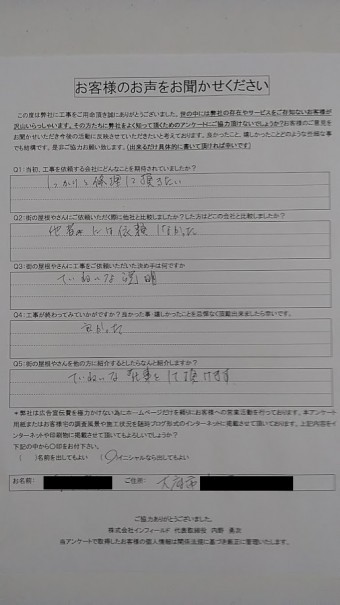 お客様のお声をお聞かせください
この度は弊社に工事をご用命頂き誠にありがとうございました。世の中には弊社の存在やサービスをご存知ないお客様が
沢山いらっしゃいます。その方たちに弊社をよく知って頂くためのアンケートにご協力頂けないでしょうか？お客様のご意見を
お聞かせいただき今後の活動に反映させていただきたいと考えております。当かったこと、嬉しかったことどのような些細な事
でも結構です。是非ご協力お願い致します。(出来るだけ具体的に書いて頂ければ幸いです)
Q1：当初、工事を依頼する会社にどんなことを期待されていましたか？
しっかりと修理して頂きたい
Q2：街の屋根やさんにご依頼いただく際に他社と比較しましたか？した方はどこの会社と比較しましたか？
他者には依頼しなかった
Q3：街の屋根やさんに工事をご依頼いただいた決め手は何ですか
ていねいな説明
Q4：工事が終わってみていかがですか？当かった事・嬉しかったことを忌憚なく記載出来ましたら幸いです。
良かった
Q5：街の屋根やさんを他の方に紹介するとしたらなんと紹介しますか？
ていねいな仕事をして頂けます
＊弊社は広告宣伝費を極力かけない為にホームページだけを頼りにお客様への営業活動を行っております。本アンケート
用紙またはお客様宅の調査風景や施工状況を随時ブログ形式のインターネットに掲載させて頂いております。上記内容をイ
ンターネットや印刷物に掲載させて頂いてもよろしいでしょうか？
下記の中から〇印をお付下さい。
( )名前を出してもよい (〇)イニシャルなら出してもよい
お名前： ご住所：
ご協力ありがとうございました。
株式会社インフィールド 代表取締役 内野 勇次
当アンケートで取得したお客様の個人情報は関係法規に基づき厳正に管理いたします。